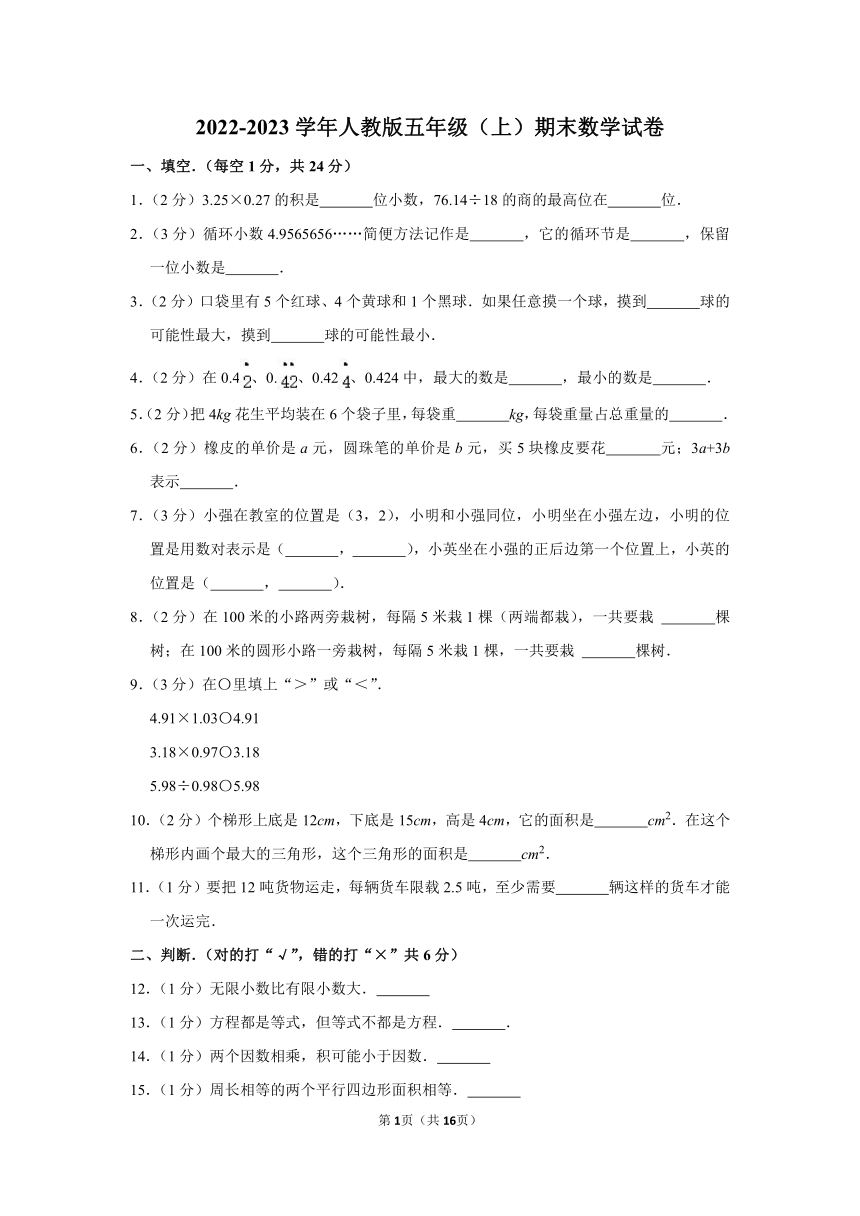 2022-2023 学年人教版五年级（上）期末数学试卷
一、填空．（每空 1 分，共 24 分）
1.（2 分）3.25×0.27 的积是______位小数，76.14÷18 的商的最高位在______位．
2.（3 分）循环小数 4.9565656……简便方法记作是______，它的循环节是______，保留
一位小数是______．
3.（2 分）口袋里有 5 个红球、4 个黄球和 1 个黑球．如果任意摸一个球，摸到______球的
可能性最大，摸到______球的可能性最小．
4.（2 分）在 0.42̇、0.4̇2̇、0.424̇、0.424 中，最大的数是______，最小的数是______．
5.（2 分）把 4kg 花生平均装在 6 个袋子里，每袋重______kg，每袋重量占总重量的______．
6.（2 分）橡皮的单价是 a 元，圆珠笔的单价是 b 元，买 5 块橡皮要花______元；3a+3b
表示______．
7.（3 分）小强在教室的位置是（3，2），小明和小强同位，小明坐在小强左边，小明的位
置是用数对表示是（______，______），小英坐在小强的正后边第一个位置上，小英的
位置是（______，______）．
8.（2 分）在 100 米的小路两旁栽树，每隔 5 米栽 1 棵（两端都栽），一共要栽 ______棵
树；在 100 米的圆形小路一旁栽树，每隔 5 米栽 1 棵，一共要栽 ______棵树．
9.（3 分）在〇里填上“＞”或“＜”．
4.91×1.03〇4.91
3.18×0.97〇3.18
5.98÷0.98〇5.98
10.（2 分）个梯形上底是 12cm，下底是 15cm，高是 4cm，它的面积是______cm²．在这个
梯形内画个最大的三角形，这个三角形的面积是______cm²．
11.（1 分）要把 12 吨货物运走，每辆货车限载 2.5 吨，至少需要______辆这样的货车才能
一次运完．
二、判断．（对的打“√”，错的打“×”共 6 分）
12.（1 分）无限小数比有限小数大．______
13.（1 分）方程都是等式，但等式不都是方程．______．
14.（1 分）两个因数相乘，积可能小于因数．______
15.（1 分）周长相等的两个平行四边形面积相等．______
第 1页（共 16页）